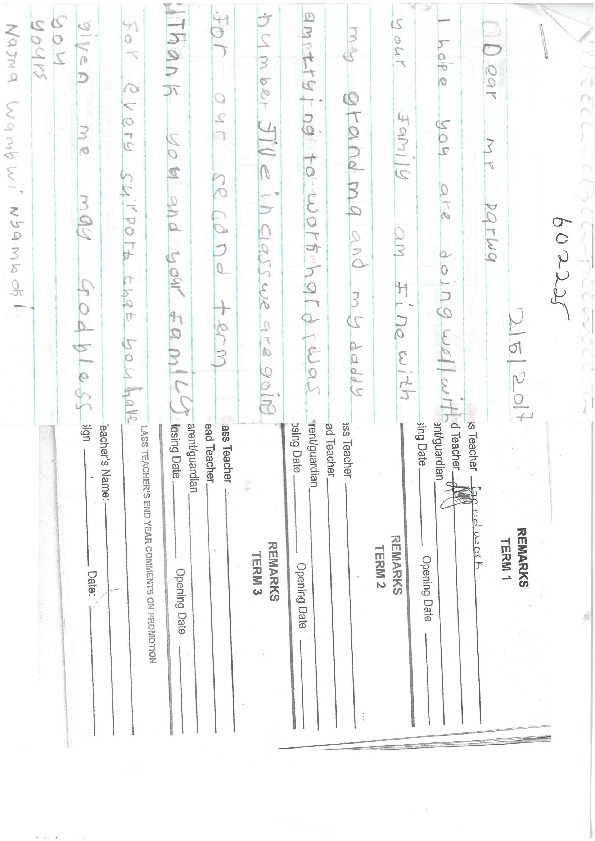 602225
2/5/2017
Dear mr Darwa
I hope you are doing well with
your family am fine with
my grandma and my daddy
am trying to work hard i was
number five in class we are going
for our second term
Thank you and your family
for every support that you have
given me may God bless
you
yours
Najma Wambui Nyamboki
REMARKS
TERM 1
ss Teacher Good work
d Teacher
ent/guardian
sing Date Opening Date
REMARKS
TERM 2
ass Teacher
ad Teacher
rent/guardian
osing Date Opening Date
REMARKS
TERM 3
ass Teacher
ead Teacher
arent/guardian
losing Date Opening Date
LASS TEACHER'S END YEAR COMMENTS ON PROMOTION
eacher's Name:
ign Date: